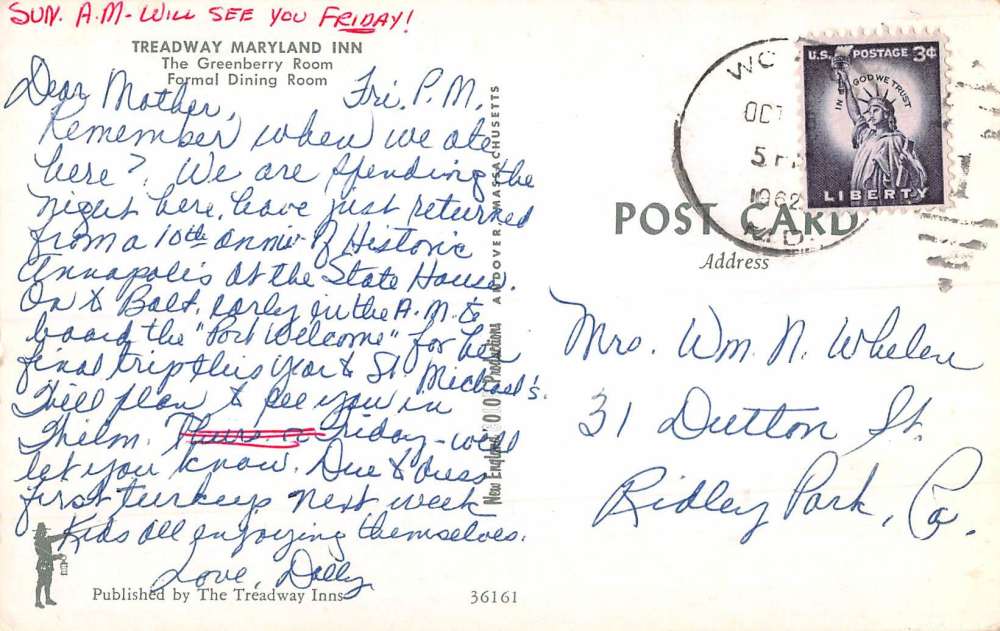 SUN. A.M - WILL SEE YOU FRIDAY!
TREADWAY MARYLAND INN
The Greenberry Room
Formal Dining Room
Dear Mother, Fri. P.M.
Remember when we ate
here? We are spending the
night here, have just returned
from a 10th anniv. of Historic
Annapolis at the State House.
On to Balt. early in the A.M. to
board the "Port Welcome" for her
final trip this year to St. Michael's.
Still plan to see you in
Wilm. Thurs. or Friday - will
let you know. Due to dress
first turkeys next week
Kids all enjoying themselves.
Love, Dolly
Published by The Treadway Inns
36161
New England Productions ANDOVER MASSACHUSETTS
POST CARD
Address
WO
OCT
5 P
1962
MD.
U.S. POSTAGE 3¢
IN GOD WE TRUST
LIBERTY
Mrs. Wm. N. Whelen
31 Dutton St.
Ridley Park, Pa.